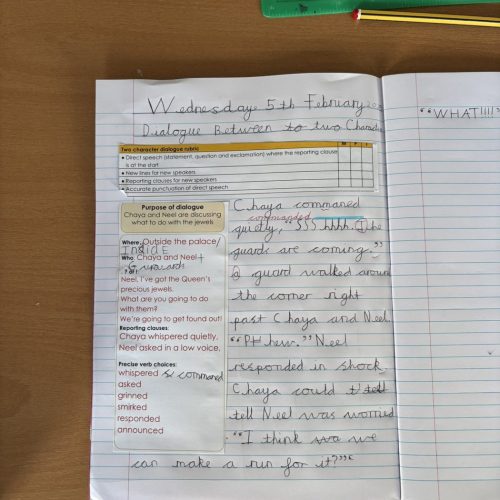 Wednesday 5th February
Dialogue Between to two Character
Two character dialogue rubric
• Direct speech (statement, question and exclamation) where the reporting clause
is at the start
• New lines for new speakers
• Reporting clauses for new speakers
• Accurate punctuation of direct speech
Purpose of dialogue
Chaya and Neel are discussing
what to do with the jewels
Where: Outside the palace/
INSIDE
Who: Chaya and Neel +
Guards
Neel, I've got the Queen's
precious jewels.
What are you going to do
with them?
We're going to get found out!
Reporting clauses:
Chaya whispered quietly,
Neel asked in a low voice,
Precise verb choices:
whispered commaned
asked
grinned
smirked
responded
announced
Chaya commaned
commanded
quietly, "SSShhhh. The
guards are coming."
a guard walked around
the corner right
past Chaya and Neel.
"Phew." Neel
responded in shock.
Chaya could tell
tell Neel was worried
"I think we
can make a run for it?"
"WHAT!!!!"